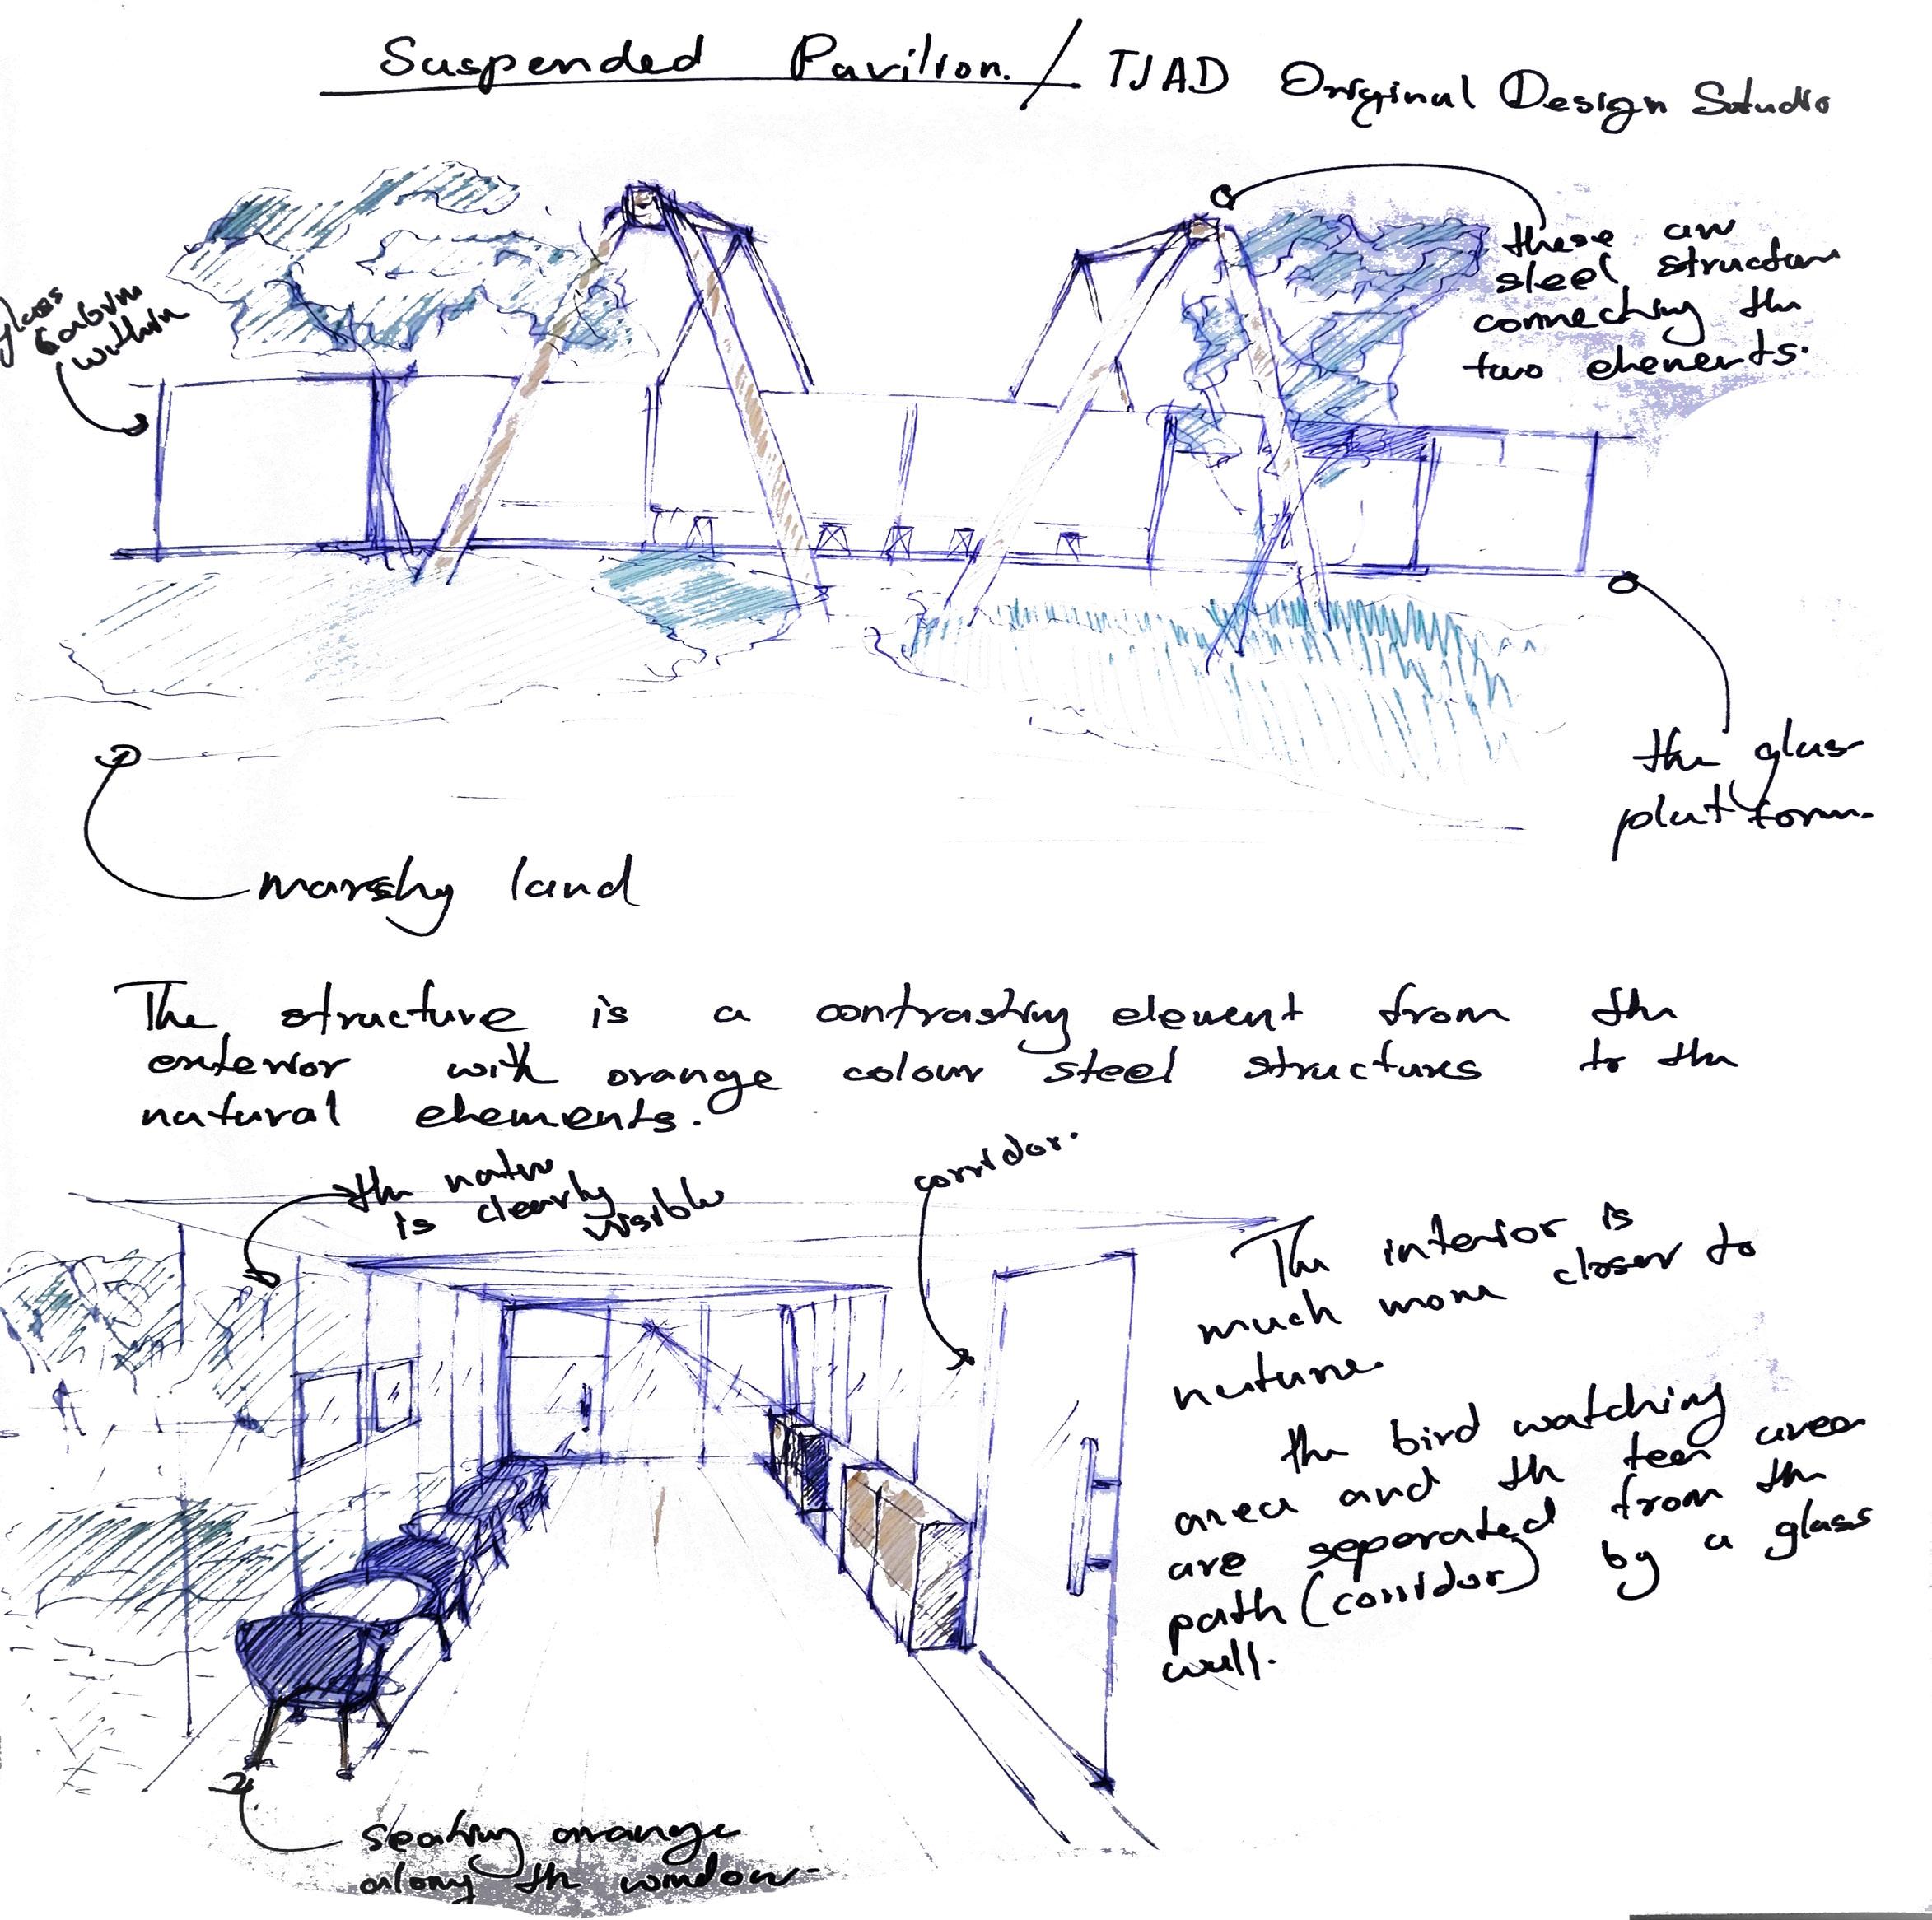 Suspended Pavilion. / TJAD Original Design Studio
glass
cabin
within
these are
steel structure
connecting the
two elements.
the glass
platform.
marshy land
The structure is a contrasting element from the
exterior with orange colour steel structures to the
natural elements.
the nature
is clearly
visible
corridor.
The interior is
much more closer to
nature
the bird watching
area and the tea area
are separated from the
path (corridor) by a glass
wall.
seating arrange
along the window